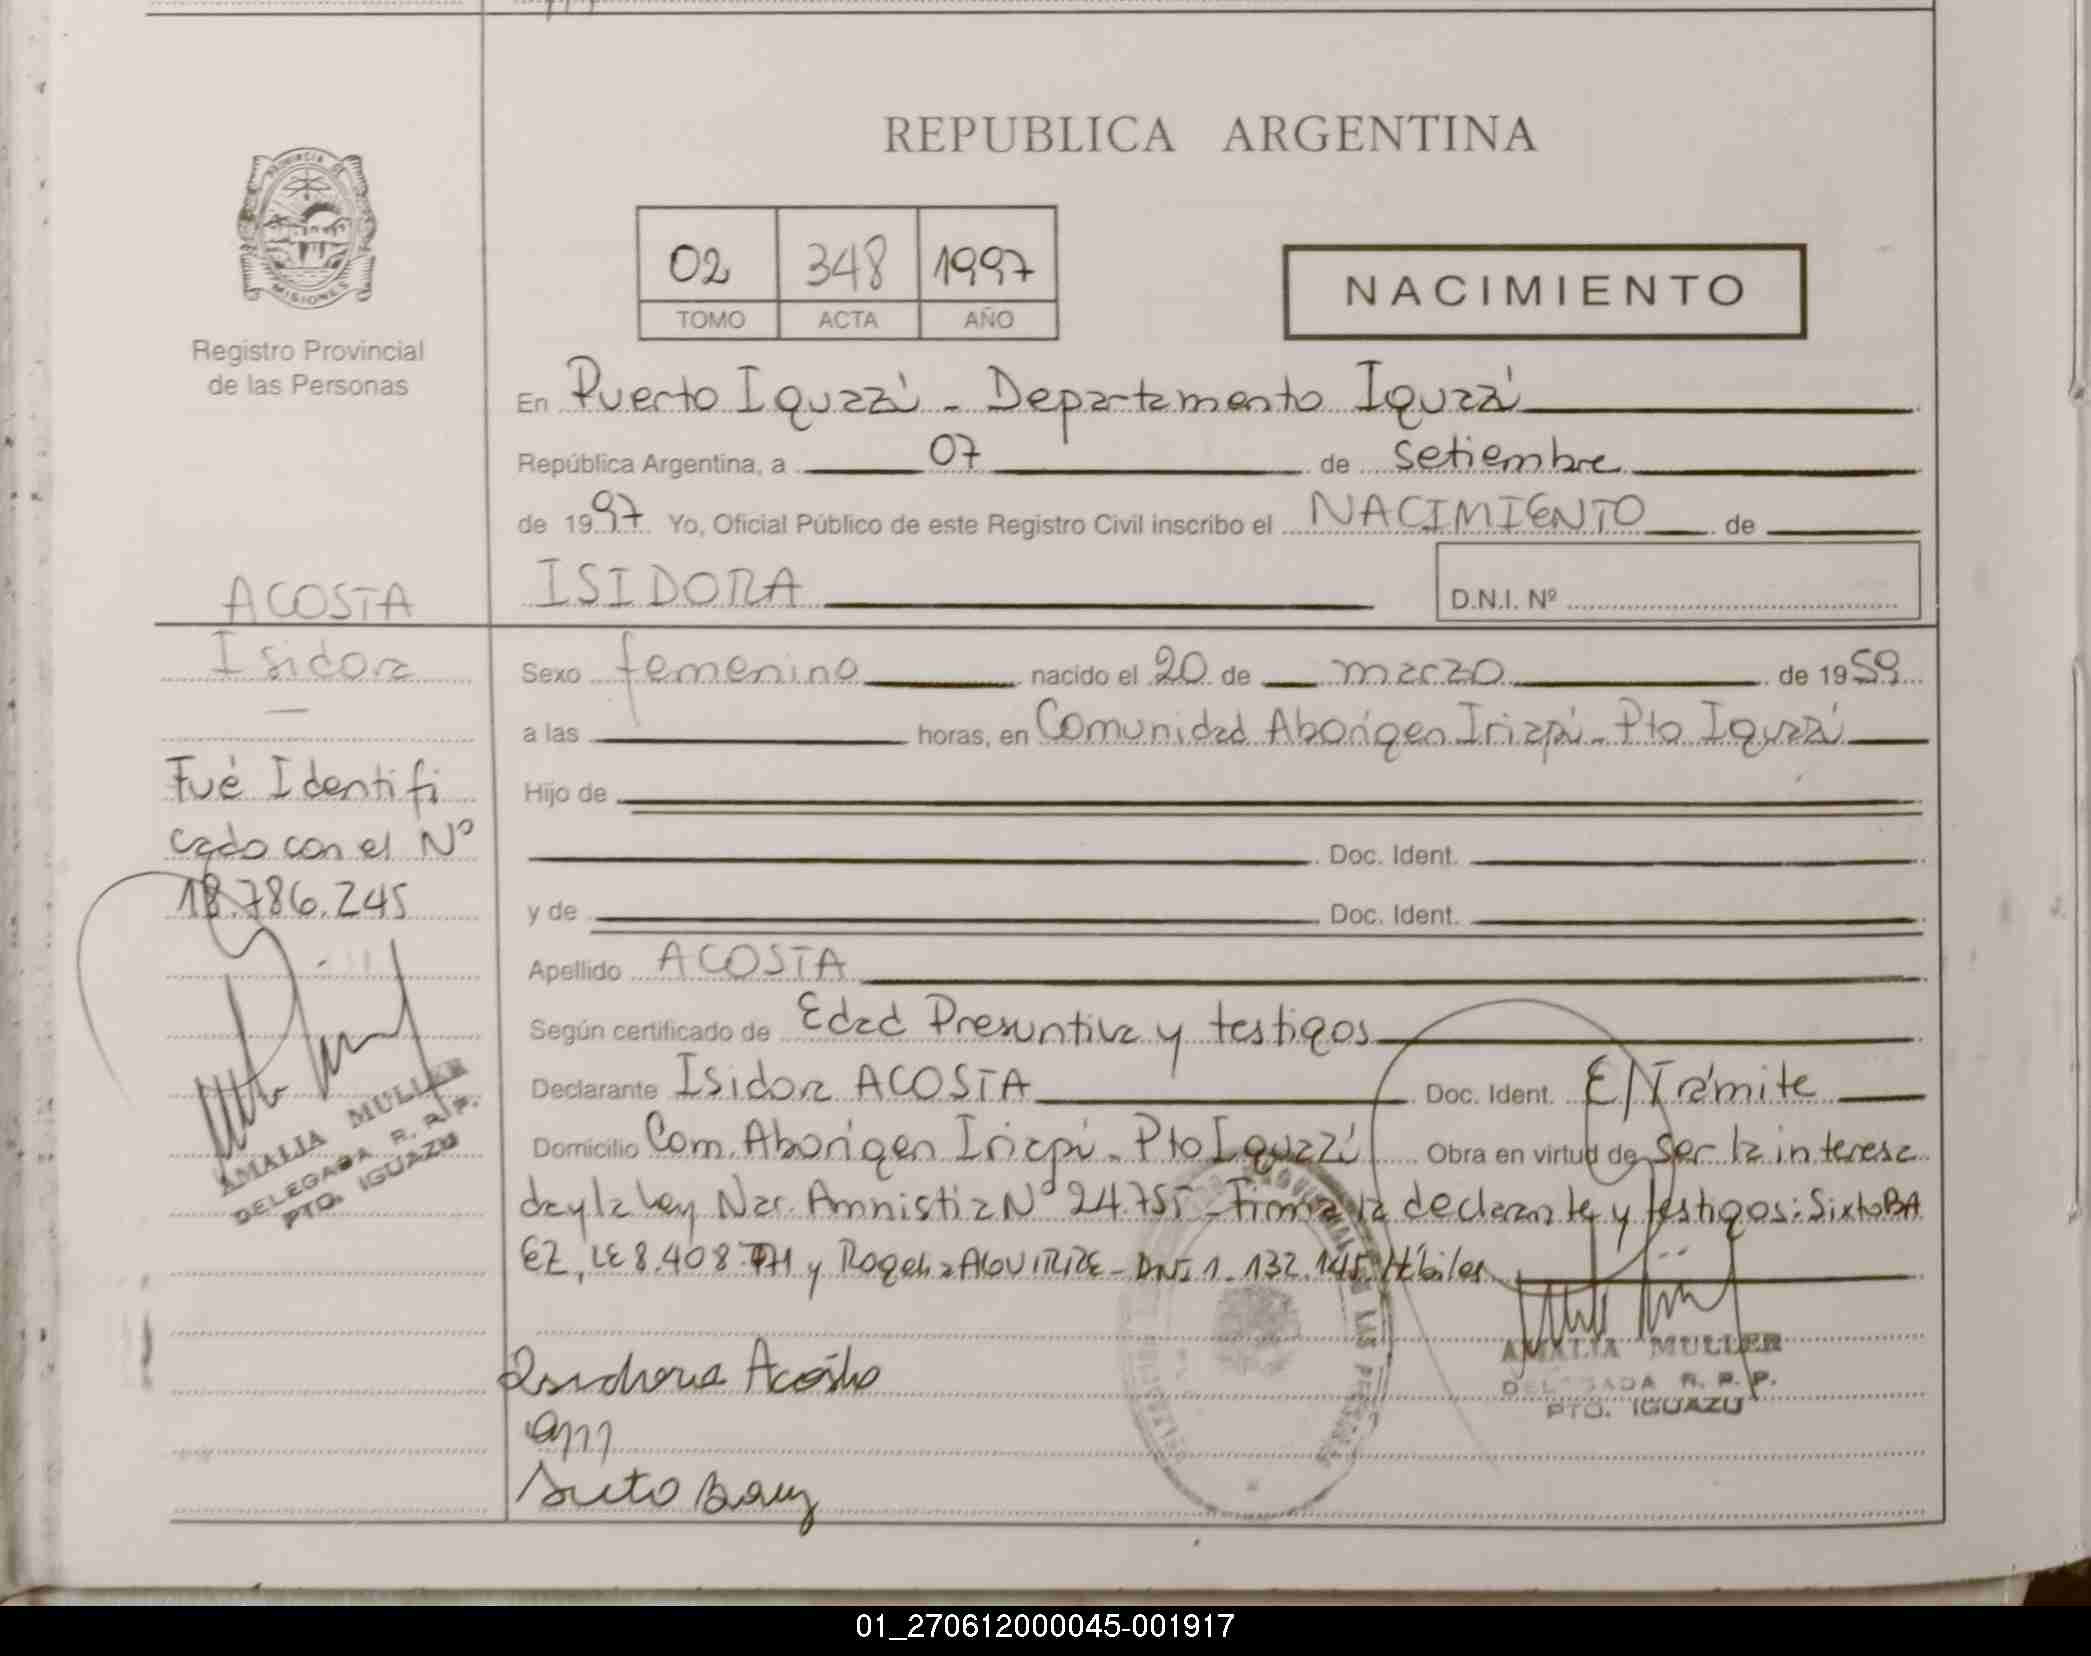 REPUBLICA ARGENTINA
PROVINCIA DE
MISIONES
Registro Provincial
de las Personas
02 348 1997
TOMO ACTA AÑO
NACIMIENTO
En Puerto Iguazú - Departamento Iguazú
República Argentina, a 07 de setiembre
de 1997 Yo, Oficial Público de este Registro Civil inscribo el NACIMIENTO de
ISIDORA
D.N.I. Nº
ACOSTA
Isidora
Fué Identifi
cado con el Nº
18.786.245
AMALIA MULLER
DELEGADA R. R. P.
PTO. IGUAZU
Sexo femenino nacido el 20 de marzo de 1959
a las horas, en Comunidad Aborigen Iriapú - Pto Iguazú
Hijo de
Doc. Ident.
y de Doc. Ident.
Apellido ACOSTA
Según certificado de Edad Presuntiva y testigos
Declarante Isidora ACOSTA Doc. Ident. E/Trámite
Domicilio Com. Aborigen Iriapú - Pto Iguazú Obra en virtud de ser la interesa
da y la Ley Nac. Amnistia Nº 24.755 - Firma la declarante y testigos: Sixto BA
EZ, LE 8.408. y Rogelia AGUIRRE - DNI 1.132.145. Hábiles
Acosta
AMALIA MULLER
DELEGADA R. R. P.
PTO. IGUAZU
01_270612000045-001917